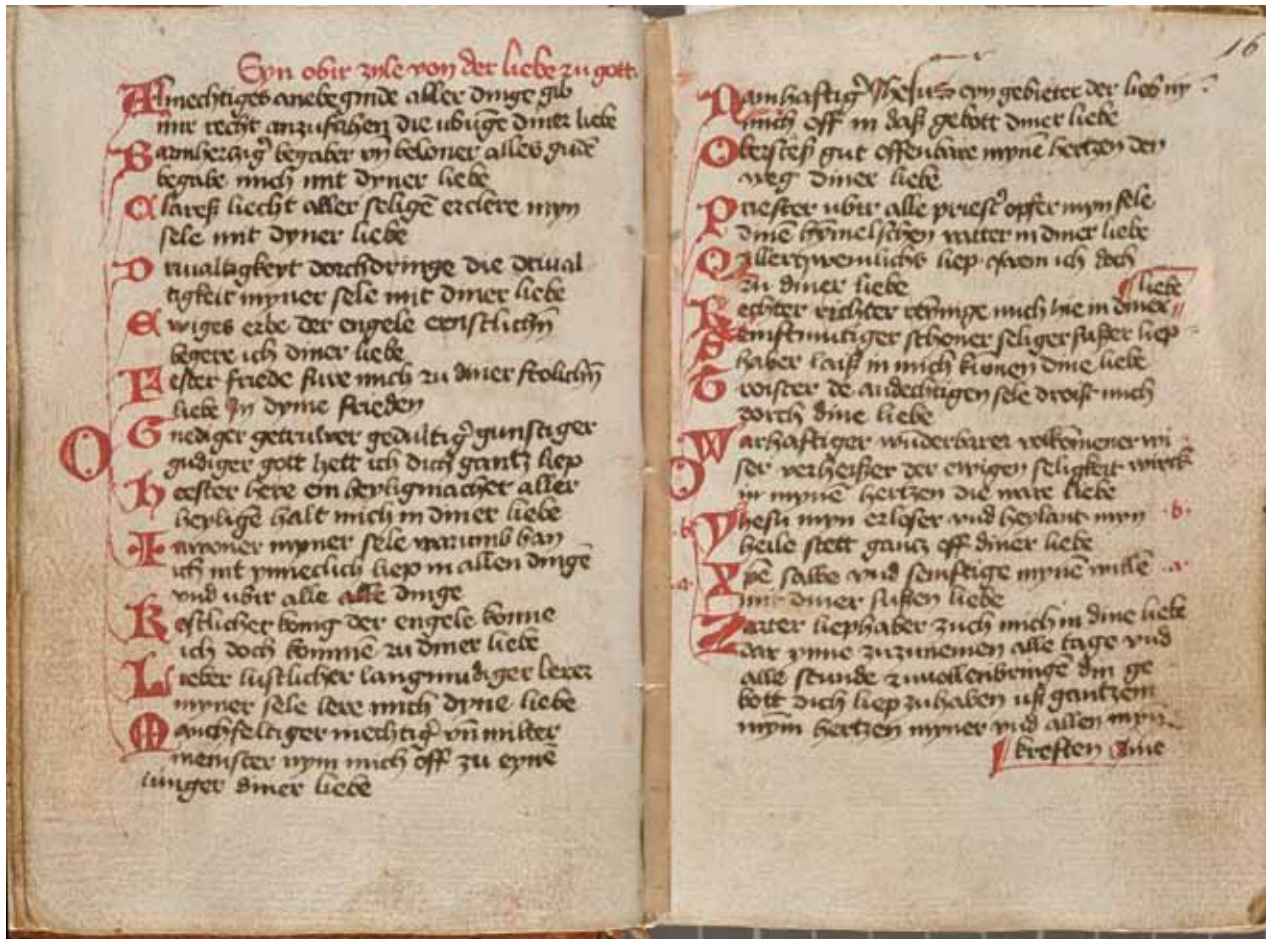 Syn obir zyle von der liebe zu gott
Almechtiges anebeginde aller dinge gib
mir recht anzufahen die ubunge diner liebe
Barmhertzig᷎ begaber vn̄ beloner alles gudē
begabe mich mit dyner liebe
Clares liecht aller seligē erclere myn
sele mit dyner liebe
Drivaltigkeyt dorchdringe die drival
tigkeit myner sele mit diner liebe
Ewiges erbe der engele ernstlichn̄
begere ich diner liebe
Fester friede fure mich zu diner frolichn̄
liebe Jn dyme frieden
O
Gnediger getruwer gedultig᷎ gunstiger
gudiger gott hett ich dich gantz liep
Heester here ein heyligmacher aller
heyligē halt mich in diner liebe
Inwoner myner sele warumb han
ich nit ynneclich liep in allen dingē
vnd ubir alle alle dinge
Kostlicher konig der engele konne
ich doch kommē zu diner liebe
Lieber lustlicher langmudiger lerer
myner sele lere mich dyne liebe
Manchfeltiger mechtig᷎ vn̄ milter
meinster nym mich off zu eynē
junger diner liebe
16
Namhaftig᷎ Jhesus eyn gebieter der lieb ny
mich off in daß gebott diner liebe
Oberstes gut offenbare mynē hertzen den
weg diner liebe
Priester ubir alle priest᷎ opfer myn sele
dinē hymelischen vatter in diner liebe
Q liep qwem ich doch
zu diner liebe
liebe
Rechter richter reynige mich hie in diner
Senftmutiger schoner seliger susser liep
haber laiß in mich kumen dine liebe
Troister de andechtigen sele droist mich
dorch dine liebe
Warhaftiger wūderbarer volkomener wi
ser verheisser der ewigen seligkeit wirck
O
in mynē hertzen die ware liebe
.b. Yhesu myn erloser vnd heylant myn .b.
heile stett gantz off diner liebe
.a. Xpē salbe vnd senftige mynē wille .a.
mit diner sussen liebe
Zarter liephaber zuch mich in dine liebe
dar ynne zuzunemen alle tage vnd
alle stunde zuvollenbringē din ge
bott dich liep zuhaben uß gantzem
mym hertzen myner vnd allen myn
kreften Ame